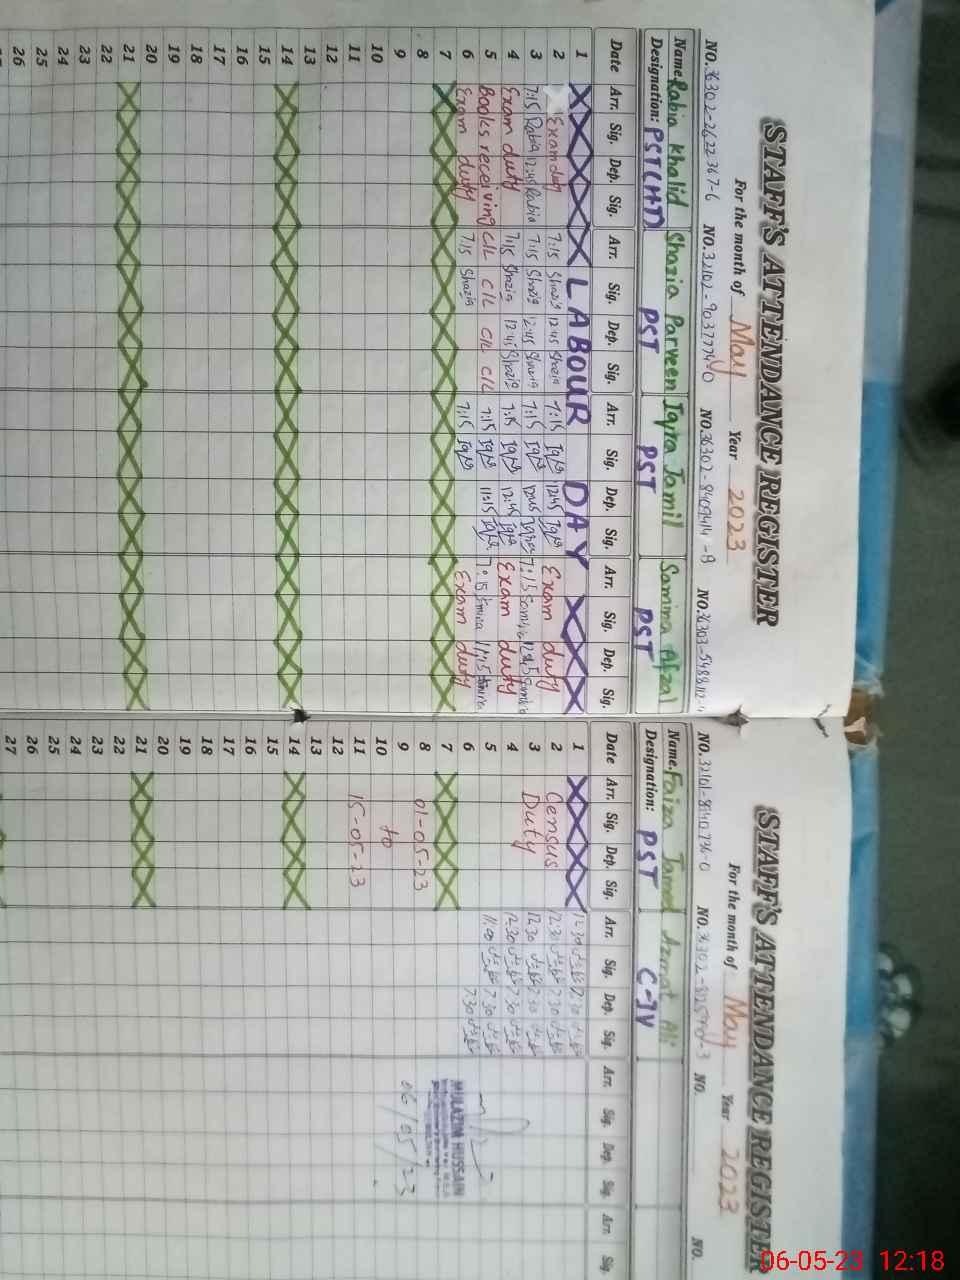 STAFF'S ATTENDANCE REGISTER
For the month of May Year 2023
NO. 36302-2622367-6 NO. 32102-9037774-0 NO. 36302-8469414-8 NO. 36303-5488112-4
Name. Rabia Khalid Shazia Parveen Iqra Jamil Samina Afzal
Designation: PST(HT) PST PST PST
Date Arr. Sig. Dep. Sig. Arr. Sig. Dep. Sig. Arr. Sig. Dep. Sig. Arr. Sig. Dep. Sig.
1 LABOUR DAY
2 Exam duty 7:15 Shazia 12:45 Shazia 7:15 Iqra 12:45 Iqra Exam duty
3 7:15 Rabia 12:45 Rabia 7:15 Shazia 12:45 Shazia 7:15 Iqra 12:45 Iqra 7:15 Samina 12:45 Samina
4 Exam duty 7:15 Shazia 12:45 Shazia 7:15 Iqra 12:45 Iqra Exam duty
5 Books receiving C/L C/L C/L C/L 7:15 Iqra 11:15 Iqra 7:15 Samina 11:15 Samina
6 Exam duty 7:15 Shazia 7:15 Iqra Exam duty
7
8
9
10
11
12
13
14
15
16
17
18
19
20
21
22
23
24
25
26
STAFF'S ATTENDANCE REGISTER
For the month of May Year 2023
NO. NO. NO. NO.
Name. Faiza Azmat Ali
Designation: PST C-IV
Date Arr. Sig. Dep. Sig. Arr. Sig. Dep. Sig. Arr. Sig. Dep. Sig. Arr. Sig.
1 12:30 7:30
2 Census 12:30 7:30
3 Duty 12:30 7:30
4 12:30 7:30
5 11:00 7:30
6 7:30
7 MULAZIM HUSSAIN
8 01-05-23
9 to 06/05/23
10
11 15-05-23
12
13
14
15
16
17
18
19
20
21
22
23
24
25
26
27
06-05-23 12:18